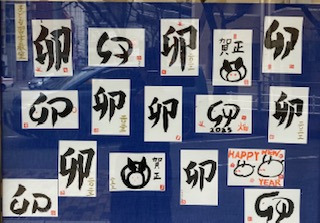 卯
卯
卯
賀正
卯
卯
卯
卯
卯
2023
卯
卯
賀正
卯
HAPPY NEW
YEAR
卯
卯